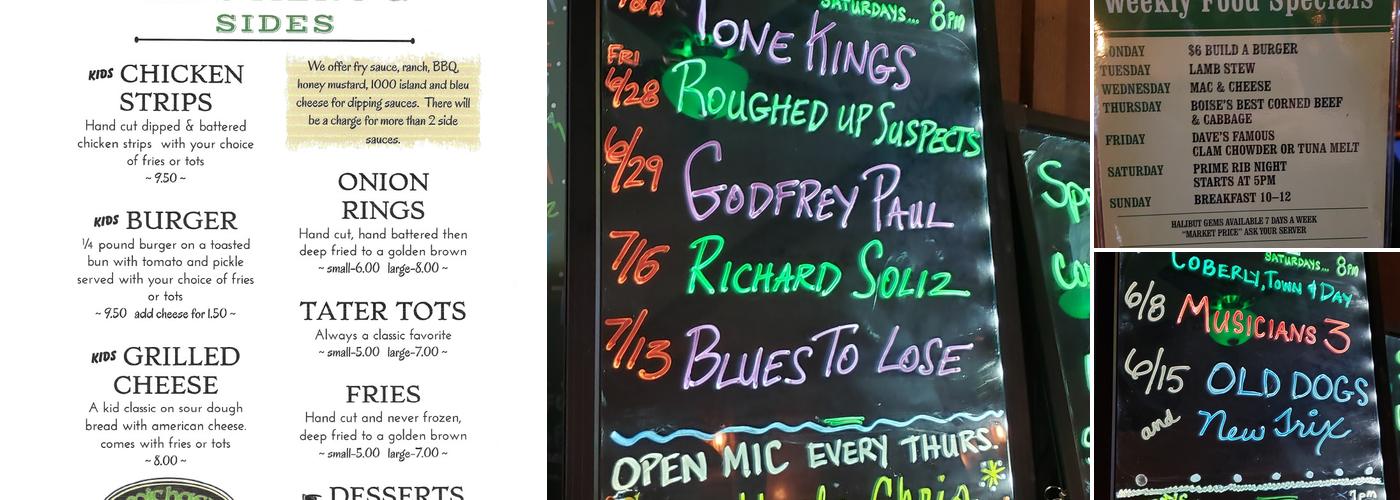 SIDES
KIDS CHICKEN
STRIPS
Hand cut dipped & battered
chicken strips with your choice
of fries or tots
~ 9.50 ~
KIDS BURGER
¼ pound burger on a toasted
bun with tomato and pickle
served with your choice of fries
or tots
~ 9.50 add cheese for 1.50 ~
KIDS GRILLED
CHEESE
A kid classic on sour dough
bread with american cheese.
comes with fries or tots
~ 8.00 ~
We offer fry sauce, ranch, BBQ,
honey mustard, 1000 island and bleu
cheese for dipping sauces. There will
be a charge for more than 2 side
sauces.
ONION
RINGS
Hand cut, hand battered then
deep fried to a golden brown
~ small-6.00 large-8.00 ~
TATER TOTS
Always a classic favorite
~ small-5.00 large-7.00 ~
FRIES
Hand cut and never frozen,
deep fried to a golden brown
~ small-5.00 large-7.00 ~
DESSERTS
SATURDAYS... 8PM
TONE KINGS
FRI
6/28 ROUGHED UP SUSPECTS
6/29 GODFREY PAUL
7/6 RICHARD SOLIZ
7/13 BLUES TO LOSE
OPEN MIC EVERY THURS.
Weekly Food Specials
MONDAY $6 BUILD A BURGER
TUESDAY LAMB STEW
WEDNESDAY MAC & CHEESE
THURSDAY BOISE'S BEST CORNED BEEF
& CABBAGE
FRIDAY DAVE'S FAMOUS
CLAM CHOWDER OR TUNA MELT
SATURDAY PRIME RIB NIGHT
STARTS AT 5PM
SUNDAY BREAKFAST 10-12
HALIBUT GEMS AVAILABLE 7 DAYS A WEEK
"MARKET PRICE" ASK YOUR SERVER
SATURDAYS... 8PM
COBERLY, TOWN & DAY
6/8 MUSICIANS 3
6/15 OLD DOGS
and New Trix